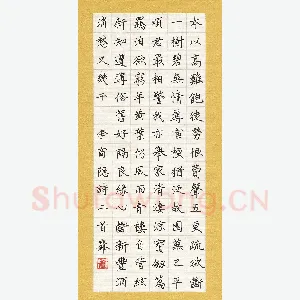 本以高難飽徒勞恨費聲五更疏欲斷
一樹碧無情薄宦梗猶泛故園蕪已平
煩君最相警我亦舉家清淒涼寶劍篇
羈泊欲窮年黃葉仍風雨青樓自管絃
新知遭薄俗舊好隔良緣心斷新豐酒
消愁又幾千 李商隱詩二首
Shufawang.CN